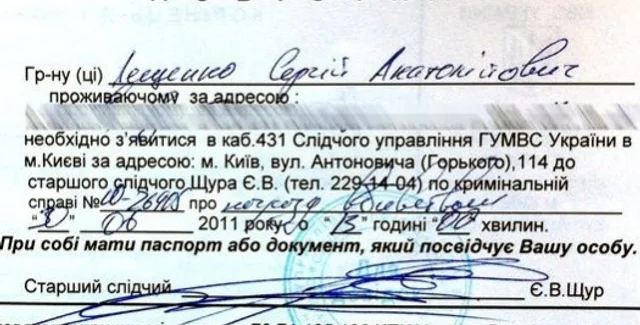 Гр-ну (ці) Лещенко Сергій Анатолійович
проживаючому за адресою :
необхідно з'явитися в каб.431 Слідчого управління ГУМВС України в
м.Києві за адресою: м. Київ, вул. Антоновича (Горького),114 до
старшого слідчого Щура Є.В. (тел. 229-14-04) по кримінальній
справі № про
"30" 06 2011 року о "15" годині "00" хвилин.
При собі мати паспорт або документ, який посвідчує Вашу особу.
Старший слідчий Є.В.Щур